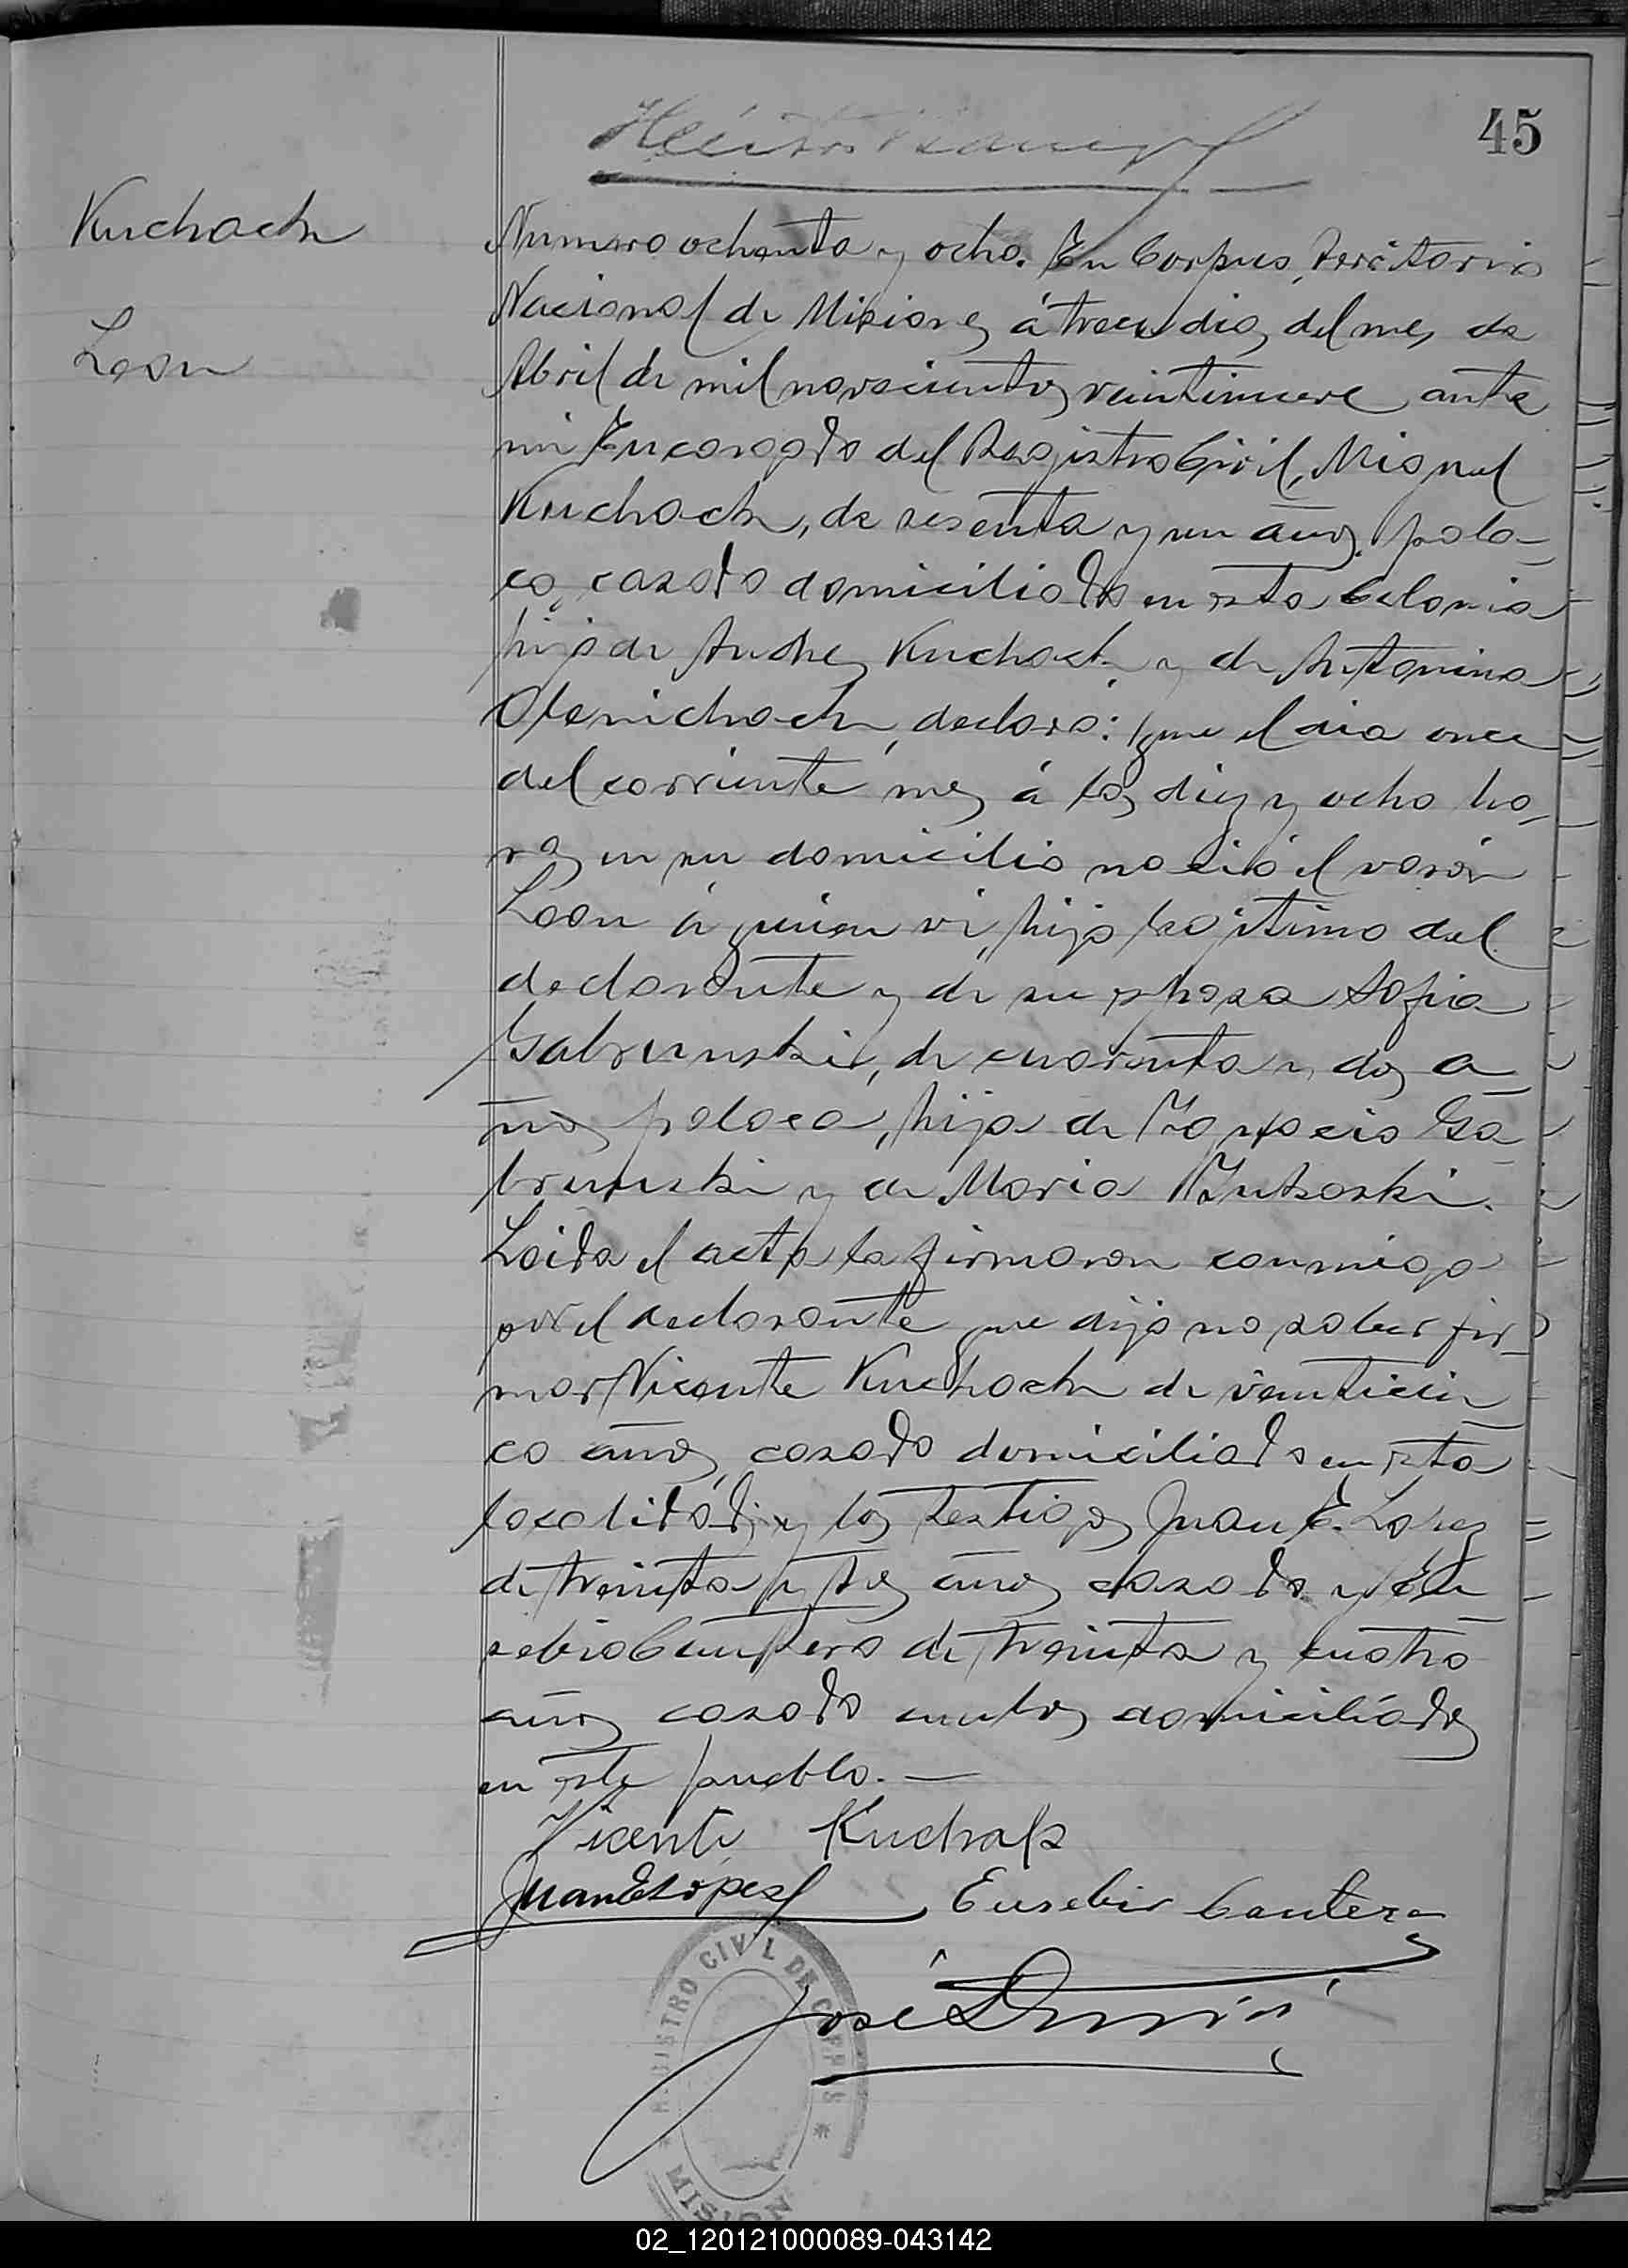 45
Kuchach
Leon
Numero ochenta y ocho. En Corpus, Territorio
Nacional de Misiones á trece dias del mes de
Abril de mil novecientos veintinueve ante
mi Encargado del Registro Civil, Miguel
Kuchach, de sesenta y un años. pola-
co, casado domiciliado en esta Colonia
hijo de Andres Kuchach y de Antonina
declaró: que el dia once
del corriente mes á las diez y ocho ho-
ras en su domicilio nació el varón
Leon á quien vi, hijo legitimo del
declarante y de su esposa Sofia
Gabrunski, de cuarenta y dos a-
ños polaca, hija de Ga-
brunski y de Maria
Leida el acta la firmaron conmigo
por el declarante que dijo no saber fir-
mar Vicente Kuchach de veinticin-
co años, casado domiciliado en esta
localidad, y los testigos Juan E. Lopez
de treinta y tres años casado y Eu-
sebio Cantero de treinta y cuatro
años casado ambos domiciliados
en este pueblo. —
Vicente Kuchak
Juan E Lopez Eusebio Cantero
José
REGISTRO CIVIL DE CORPUS
MISION
02_120121000089-043142